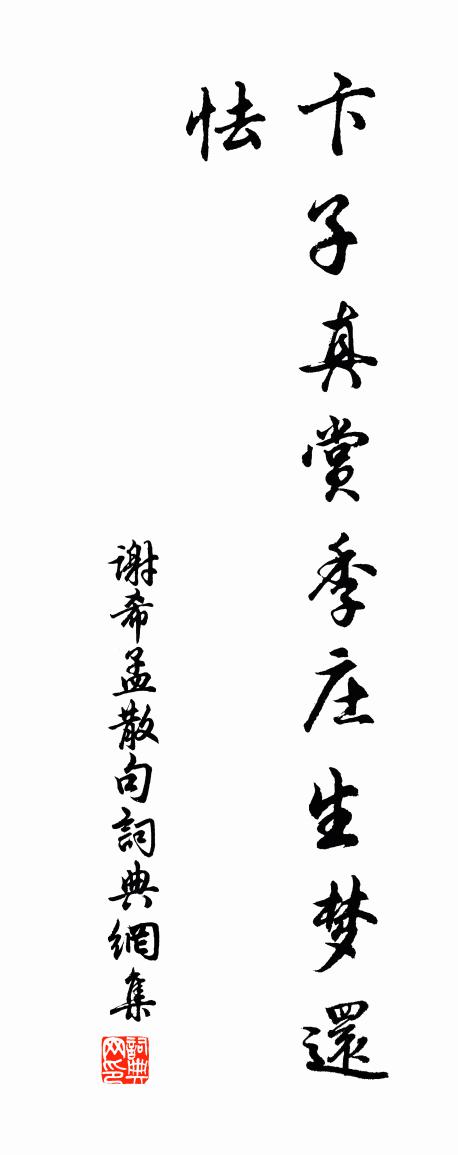 卞子真赏季庄生梦還
怯
谢希孟散句詞典網集
詞典
网印